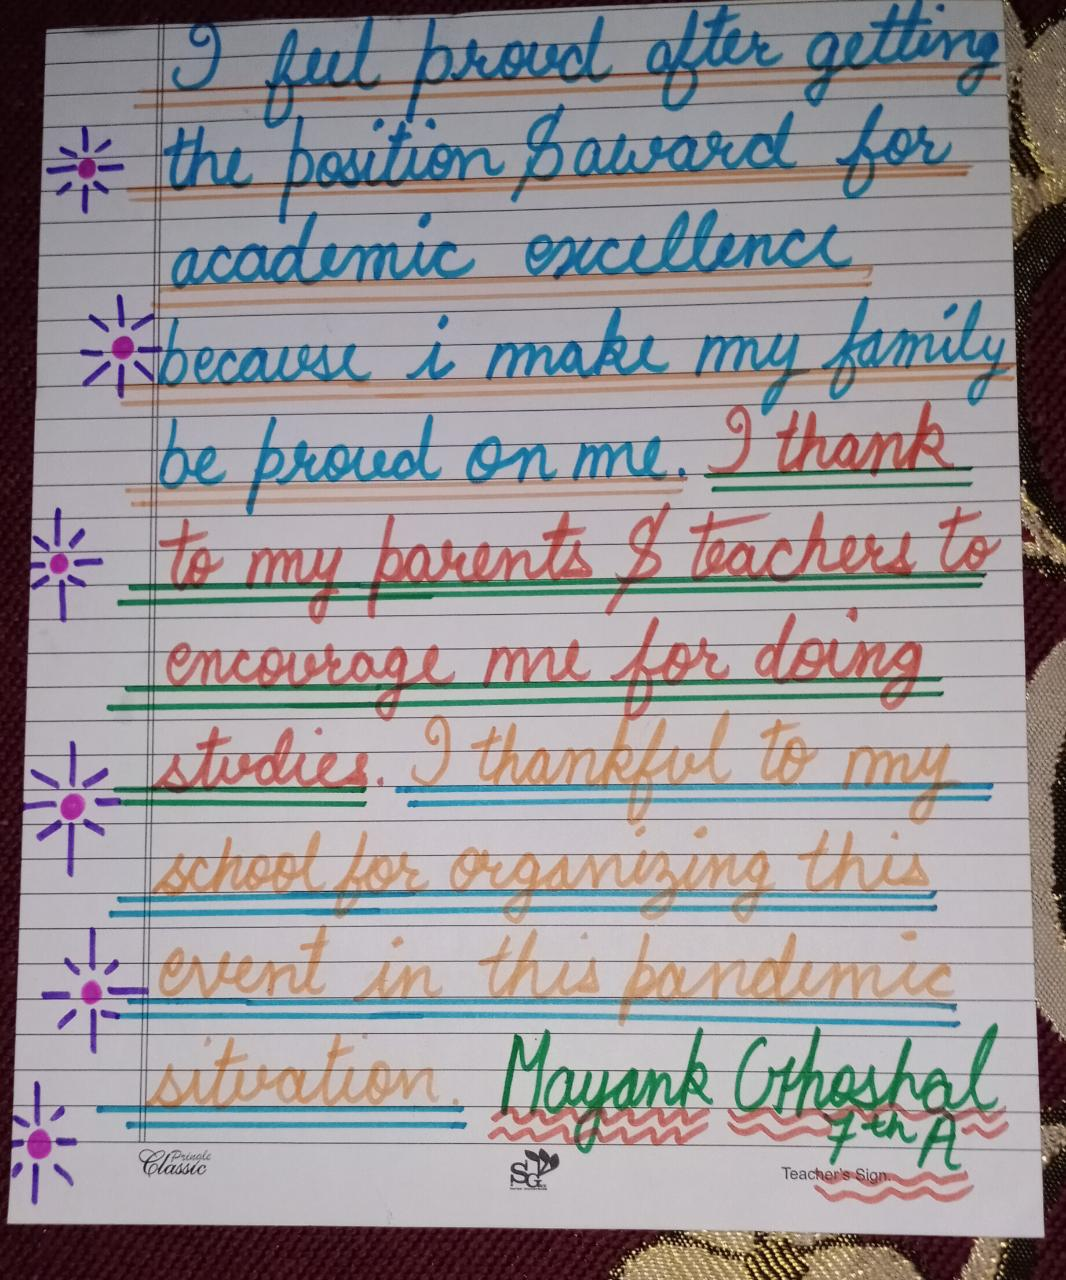 I feel proud after getting
the position & award for
academic excellence
because i make my family
be proud on me. I thank
to my parents & teachers to
encourage me for doing
studies. I thankful to my
school for organizing this
event in this pandemic
situation. Mayank Ghoshal
7th A
Pringle
Classic
SG
Teacher's Sign.